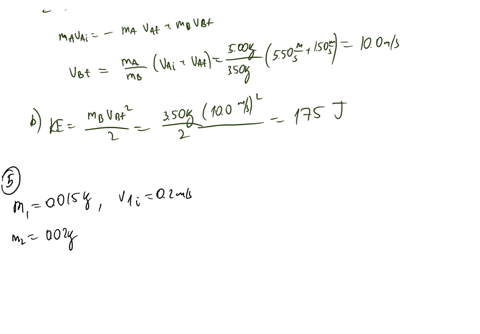 m_A v_Ai = - m_A v_At + m_B v_Bt
v_Bt = m_A/m_B (v_Ai + v_At) = 5.00kg/3.50kg (5.50 m/s + 1.50 m/s) = 10.0 m/s
b) KE = m_B v_Bt²/2 = 3.50kg (10.0 m/s)²/2 = 175 J
⑤
m₁ = 0.015kg, v_1i = 0.2 m/s
m₂ = 0.02kg